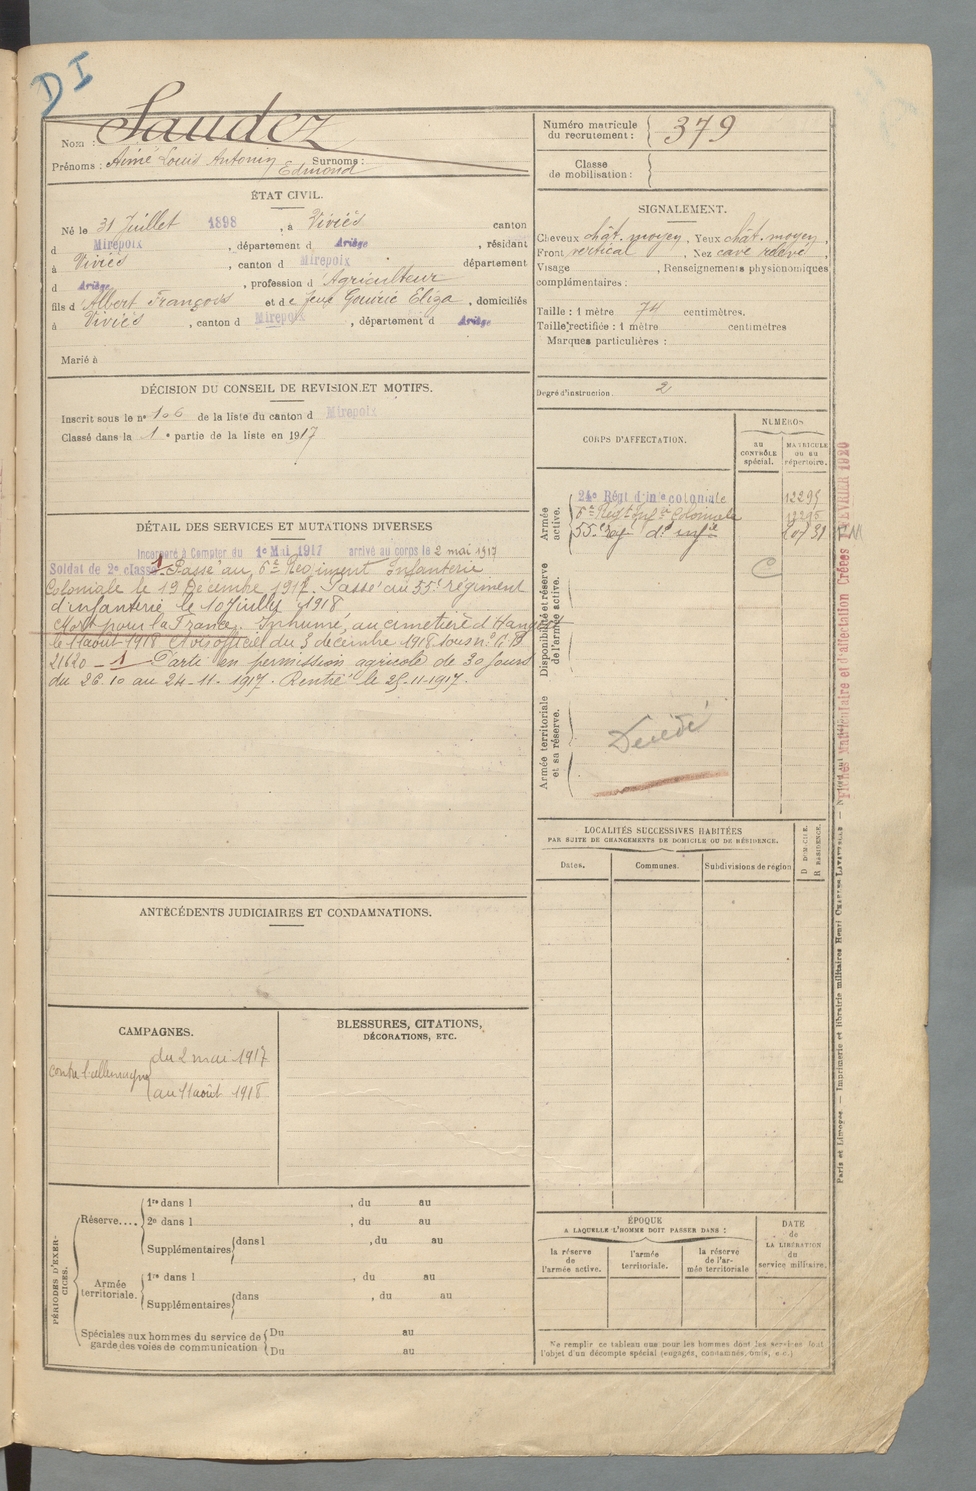 DI
Nom : Saudez
Prénoms : Aimé Louis Antonin Edmond Surnoms :
Numéro matricule du recrutement : 379
Classe de mobilisation :
ÉTAT CIVIL.
Né le 31 Juillet 1898, à Viviès canton
d Mirepoix, département d Ariège, résidant
à Viviès, canton d Mirepoix département
d Ariège, profession d Agriculteur
fils d Albert François et de feue Gouzie Eliza, domiciliés
à Viviès, canton d Mirepoix, département d Ariège
Marié à
SIGNALEMENT.
Cheveux chât. moyen, Yeux chât. moyen,
Front vertical, Nez cave relevé,
Visage , Renseignements physionomiques
complémentaires :
Taille : 1 mètre 74 centimètres.
Taille rectifiée : 1 mètre centimètres
Marques particulières :
Degré d'instruction. 2
DÉCISION DU CONSEIL DE REVISION ET MOTIFS.
Inscrit sous le n° 106 de la liste du canton d Mirepoix
Classé dans la 1e partie de la liste en 1917
DÉTAIL DES SERVICES ET MUTATIONS DIVERSES
Incorporé à Compter du 1e Mai 1917 arrivé au corps le 2 mai 1917
Soldat de 2e classe. Passé au 6e Régiment Infanterie
Coloniale le 19 Décembre 1917. Passé au 55e régiment
d'infanterie le 10 Juillet 1918
Mort pour la France. Inhumé, au cimetière d'Hangest
le 11 août 1918 Avis officiel du 3 décembre 1918 sous n°
21620 – 1 Parti en permission agricole de 30 Jours
du 26.10 au 24-11-1917. Rentré le 25-11-1917.
CORPS D'AFFECTATION.
NUMÉROS
au CONTRÔLE spécial.
MATRICULE OU AU répertoire.
Armée active.
24e Régt d'infe coloniale 12295
6e Regt Infie Coloniale 12295
55e reg d'infie
Disponibilité et réserve de l'armée active.
C
Armée territoriale et sa réserve.
Décédé
Fiches Matriculaire et d'affectation Créées FEVRIER 1926
LOCALITÉS SUCCESSIVES HABITÉES
PAR SUITE DE CHANGEMENTS DE DOMICILE OU DE RÉSIDENCE.
Dates.
Communes.
Subdivisions de région
D DOMICILE.
R RÉSIDENCE.
ANTÉCÉDENTS JUDICIAIRES ET CONDAMNATIONS.
CAMPAGNES.
contre l'allemagne
du 2 mai 1917
au 11 août 1918
BLESSURES, CITATIONS,
DÉCORATIONS, ETC.
PÉRIODES D'EXERCICES.
Réserve....
1re dans l , du au
2e dans l , du au
Supplémentaires dans l , du au
Armée territoriale.
1re dans l , du au
Supplémentaires dans , du au
Spéciales aux hommes du service de garde des voies de communication
Du au
Du au
ÉPOQUE
A LAQUELLE L'HOMME DOIT PASSER DANS :
la réserve de l'armée active.
l'armée territoriale.
la réserve de l'armée territoriale
DATE de LA LIBÉRATION du service militaire.
Ne remplir ce tableau que pour les hommes dont les services font
l'objet d'un décompte spécial (engagés, condamnés, omis, etc.)
Paris et Limoges. — Imprimerie et librairie militaires Henri CHARLES-LAVAUZELLE —